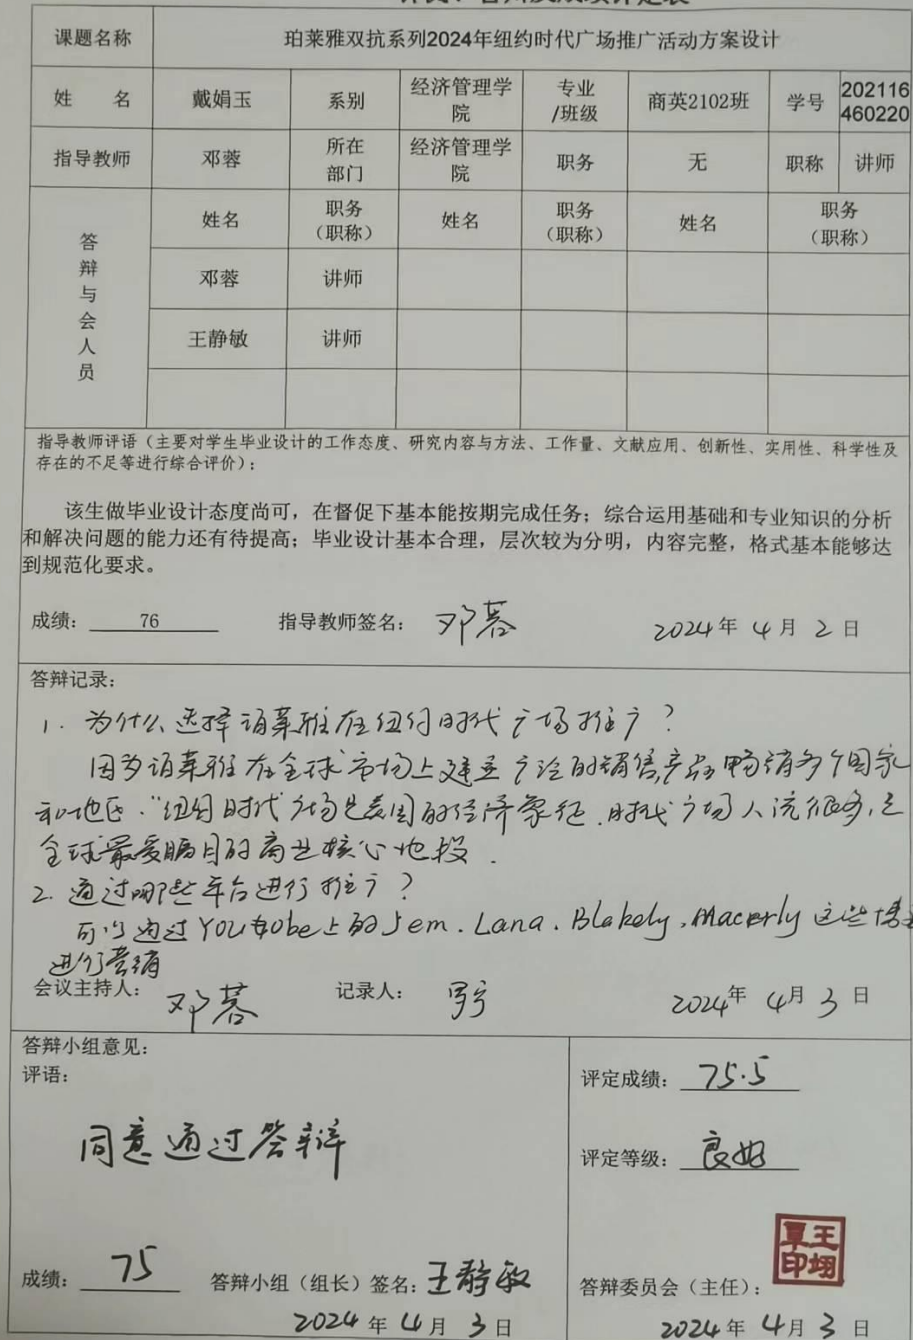 课题名称 珀莱雅双抗系列2024年纽约时代广场推广活动方案设计
姓 名 戴娟玉 系别 经济管理学院 专业/班级 商英2102班 学号 202116460220
指导教师 邓蓉 所在部门 经济管理学院 职务 无 职称 讲师
答辩与会人员
姓名 职务(职称) 姓名 职务(职称) 姓名 职务(职称)
邓蓉 讲师
王静敏 讲师
指导教师评语(主要对学生毕业设计的工作态度、研究内容与方法、工作量、文献应用、创新性、实用性、科学性及
存在的不足等进行综合评价):
该生做毕业设计态度尚可,在督促下基本能按期完成任务;综合运用基础和专业知识的分析
和解决问题的能力还有待提高;毕业设计基本合理,层次较为分明,内容完整,格式基本能够达
到规范化要求。
成绩: 76 指导教师签名: 邓蓉 2024年 4月 2日
答辩记录:
1. 为什么选择珀莱雅在纽约时代广场推广?
因为珀莱雅在全球市场上建立广泛的销售产品畅销多个国家
和地区. 纽约时代广场是美国的经济象征.时代广场人流很多,是
全球最受瞩目的商业核心地段.
2. 通过哪些平台进行推广?
可以通过YOUtobe上的Jem.Lana.Blakely, 这些博主
进行营销
会议主持人: 邓蓉 记录人: 2024年 4月 3日
答辩小组意见:
评语:
同意通过答辩
成绩: 75 答辩小组(组长)签名: 王静敏
2024年 4月 3日
评定成绩: 75.5
评定等级: 良好
答辩委员会(主任):
2024年 4月 3日